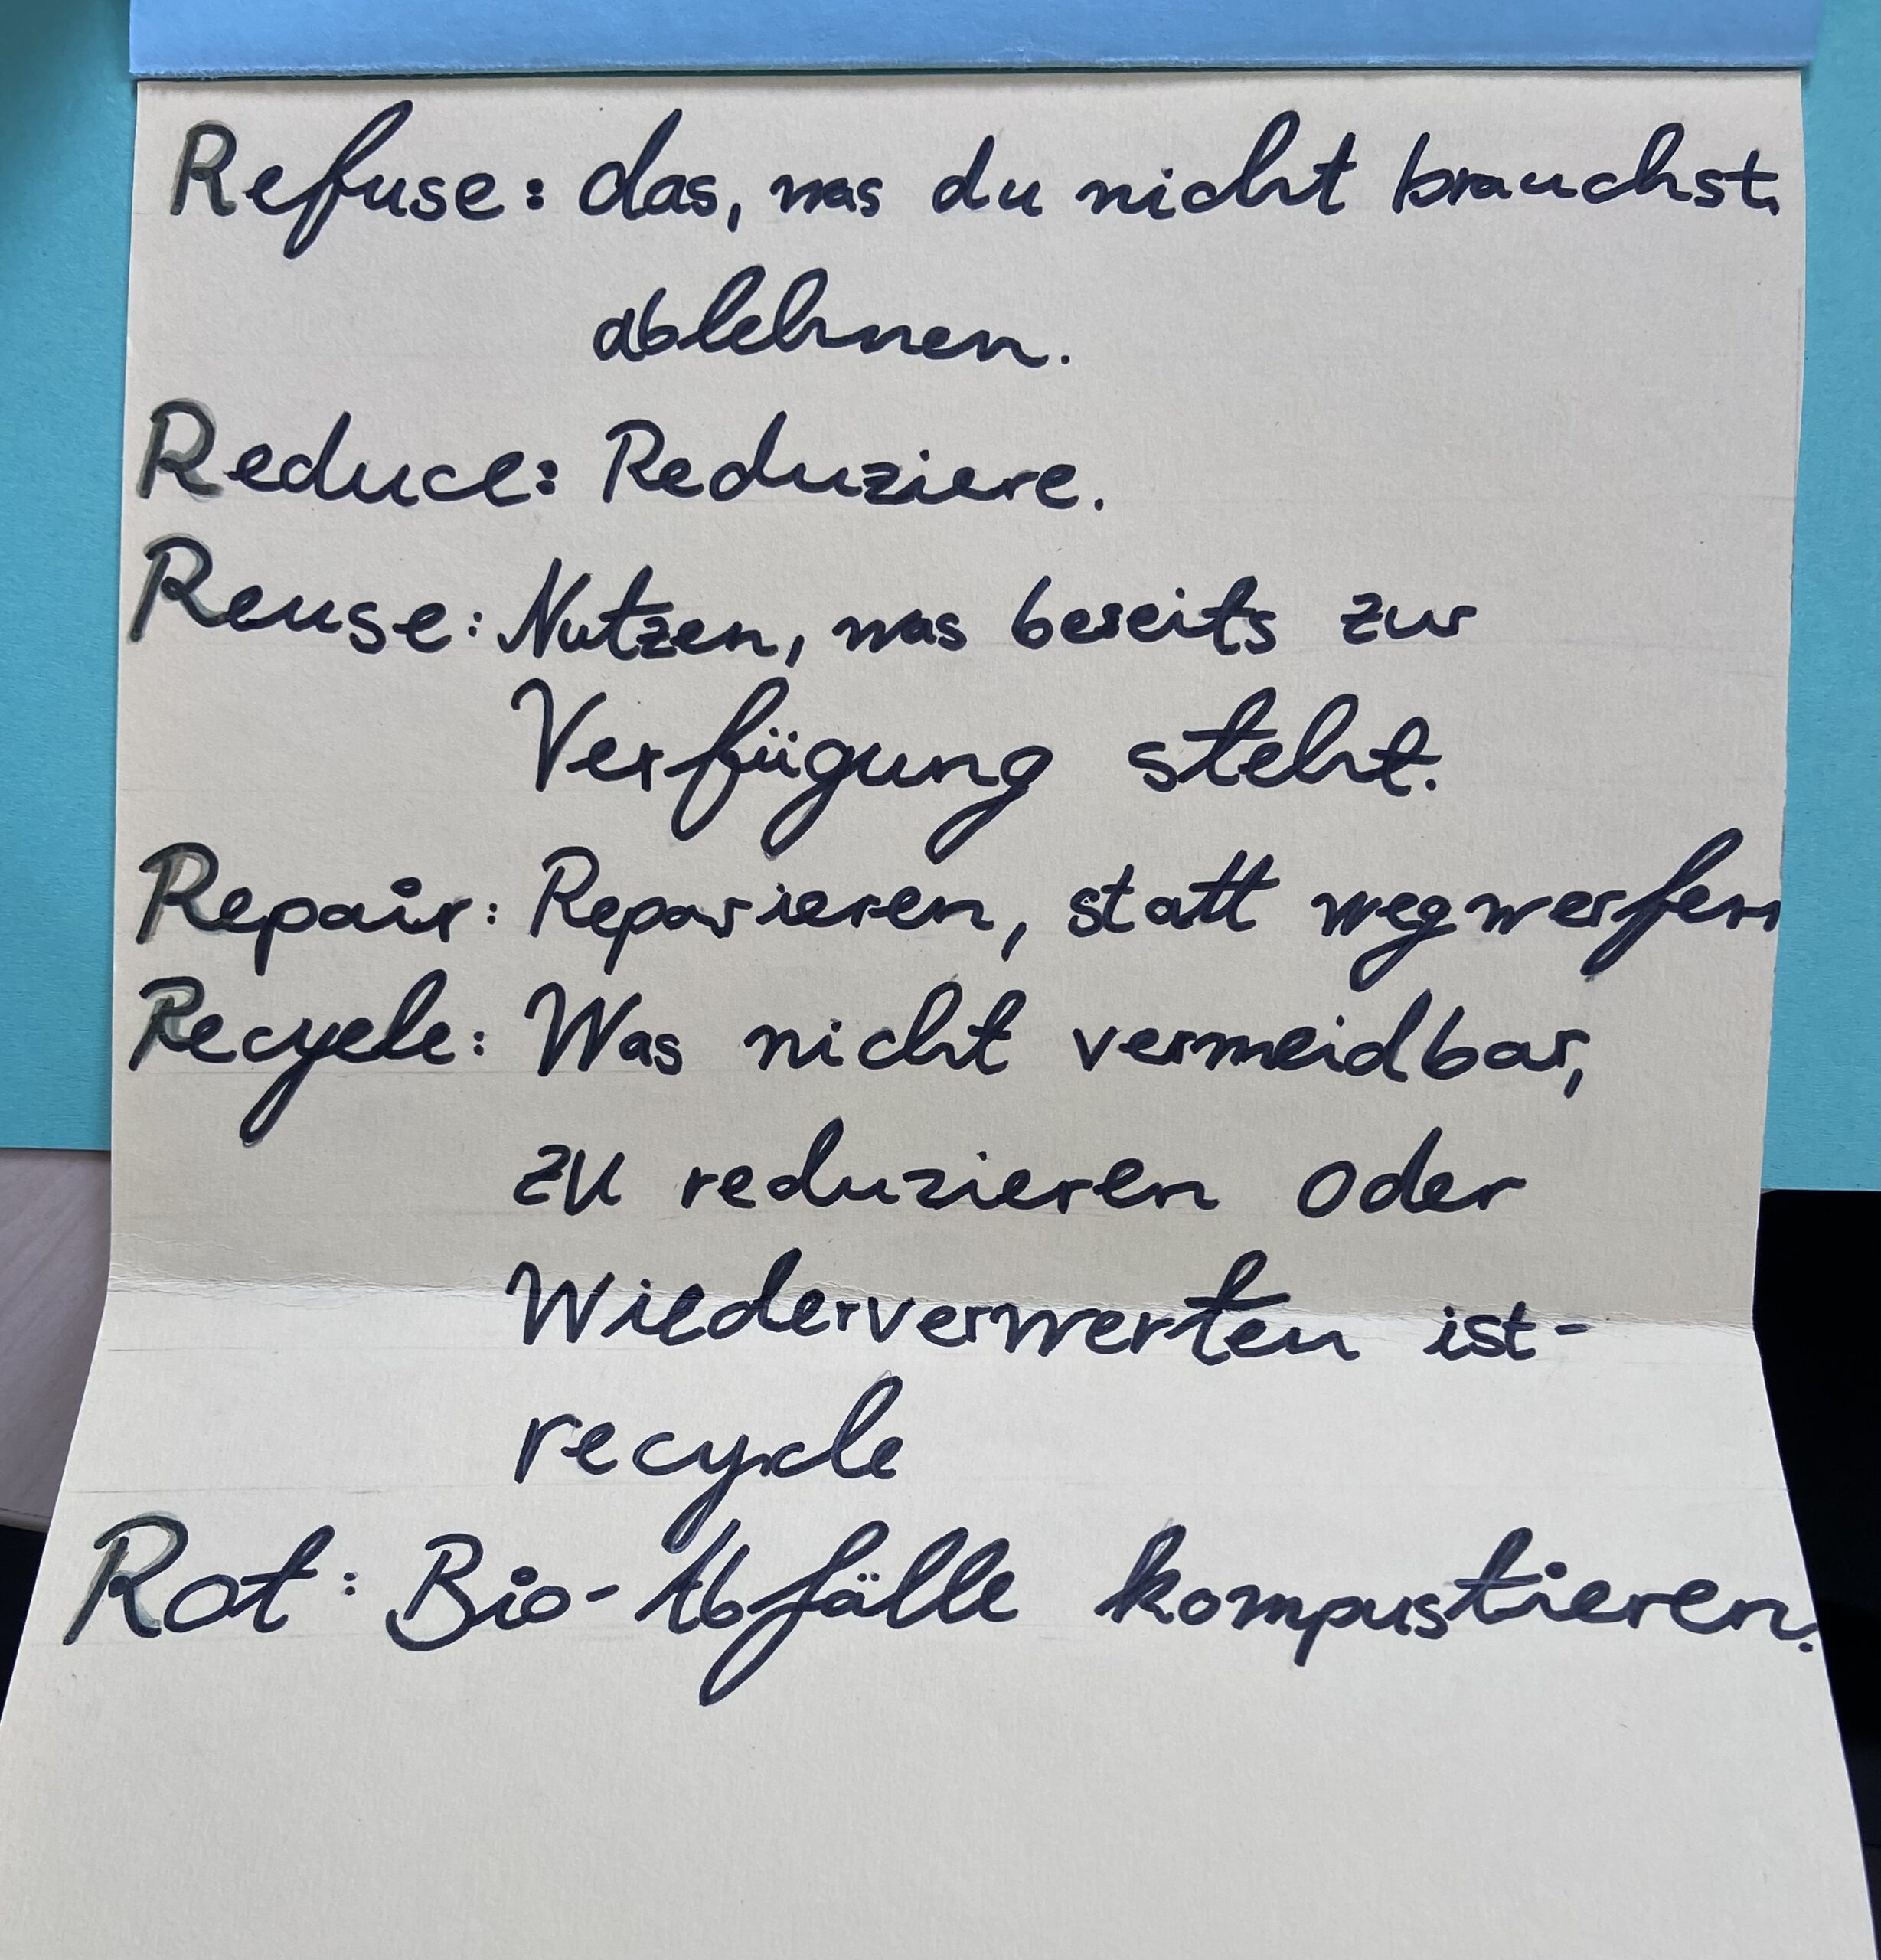 Refuse: das, was du nicht brauchst,
ablehnen.
Reduce: Reduziere.
Reuse: Nutzen, was bereits zur
Verfügung steht.
Repair: Reparieren, statt wegwerfen
Recycle: Was nicht vermeidbar,
zu reduzieren oder
Wiederverwerten ist-
recycle
Rot: Bio-Abfälle kompustieren.